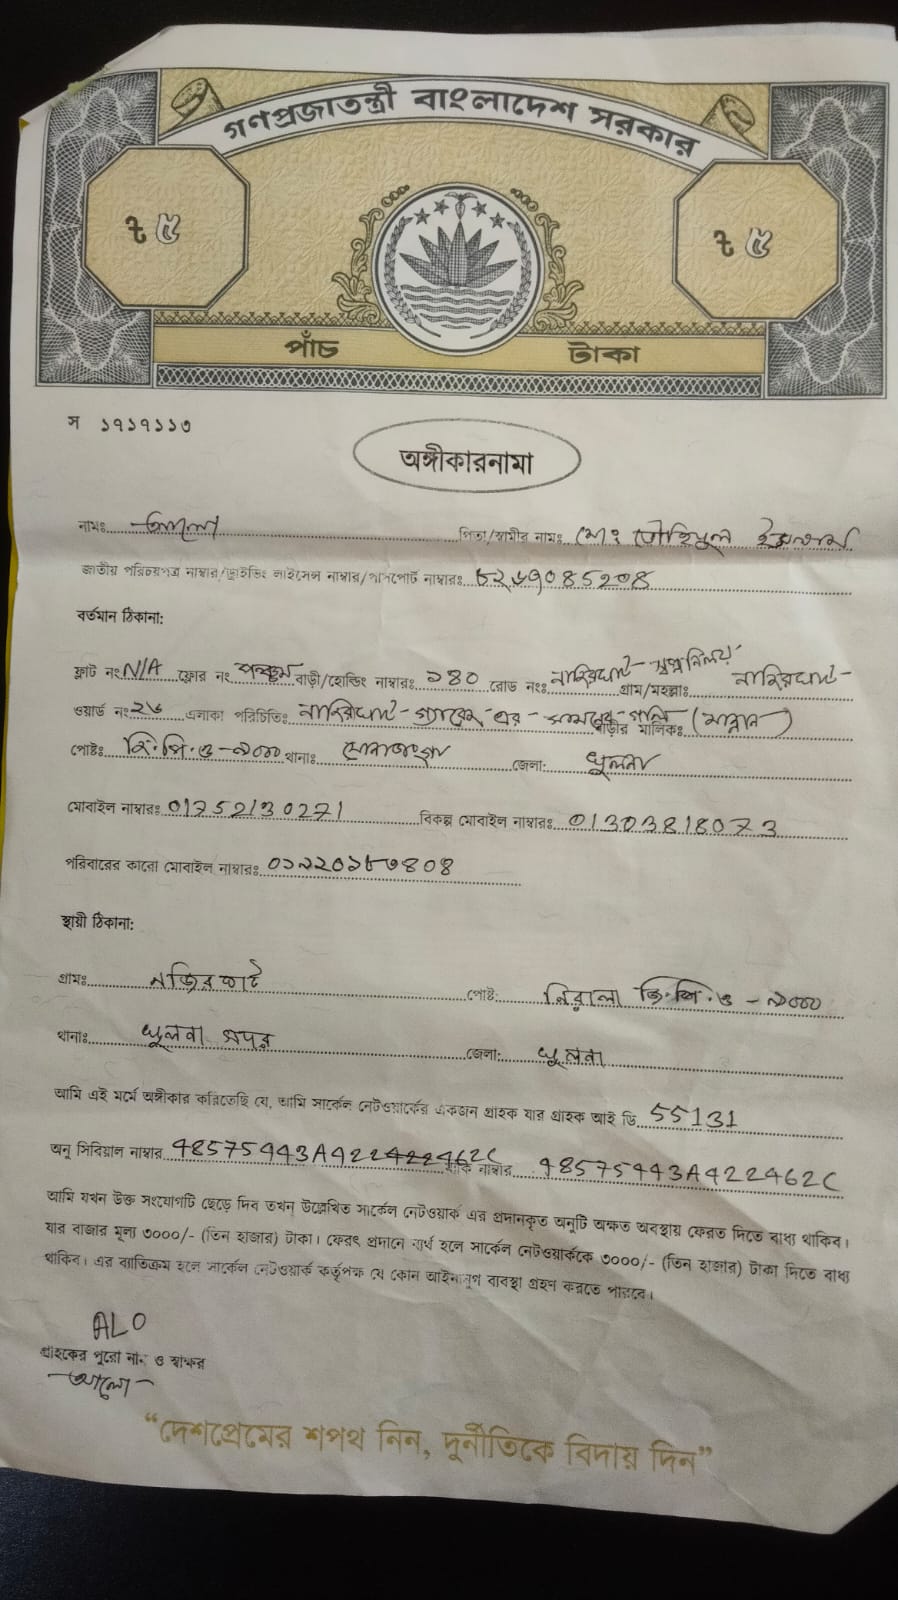 গণপ্রজাতন্ত্রী বাংলাদেশ সরকার
৳ ৫ ৳ ৫
পাঁচ টাকা
স ১৭১৭১১৩
অঙ্গীকারনামা
নামঃ আলো পিতা/স্বামীর নামঃ মোঃ তৌহিদুল ইসলাম
জাতীয় পরিচয়পত্র নাম্বার/ড্রাইভিং লাইসেন্স নাম্বার/পাসপোর্ট নাম্বারঃ
বর্তমান ঠিকানা:
ফ্লাট নংঃ N/A ফ্লোর নং বাড়ী/হোল্ডিং নাম্বারঃ ১৪০ রোড নংঃ গ্রাম/মহল্লাঃ
ওয়ার্ড নংঃ এলাকা পরিচিতিঃ এর সামনের গলি বাড়ীর মালিকঃ (মান্নান)
পোষ্টঃ জি.পি.ও-৯০০০ থানাঃ সোনাডাঙ্গা জেলা: খুলনা
মোবাইল নাম্বারঃ 01752130271 বিকল্প মোবাইল নাম্বারঃ 01303818073
পরিবারের কারো মোবাইল নাম্বারঃ
স্থায়ী ঠিকানা:
গ্রামঃ পোষ্ট: নিরালা জি.পি.ও - ৯০০০
থানাঃ খুলনা সদর জেলা: খুলনা
আমি এই মর্মে অঙ্গীকার করিতেছি যে, আমি সার্কেল নেটওয়ার্কের একজন গ্রাহক যার গ্রাহক আই ডি 55131
অনু সিরিয়াল নাম্বার 48575443A422462C ম্যাক নাম্বার 48575443A422462C
আমি যখন উক্ত সংযোগটি ছেড়ে দিব তখন উল্লেখিত সার্কেল নেটওয়ার্ক এর প্রদানকৃত অনুটি অক্ষত অবস্থায় ফেরত দিতে বাধ্য থাকিব।
যার বাজার মূল্য ৩০০০/- (তিন হাজার) টাকা। ফেরৎ প্রদানে ব্যর্থ হলে সার্কেল নেটওয়ার্ককে ৩০০০/- (তিন হাজার) টাকা দিতে বাধ্য
থাকিব। এর ব্যতিক্রম হলে সার্কেল নেটওয়ার্ক কর্তৃপক্ষ যে কোন আইনানুগ ব্যবস্থা গ্রহণ করতে পারবে।
ALO
গ্রাহকের পুরো নাম ও স্বাক্ষর
আলো
“দেশপ্রেমের শপথ নিন, দুর্নীতিকে বিদায় দিন”